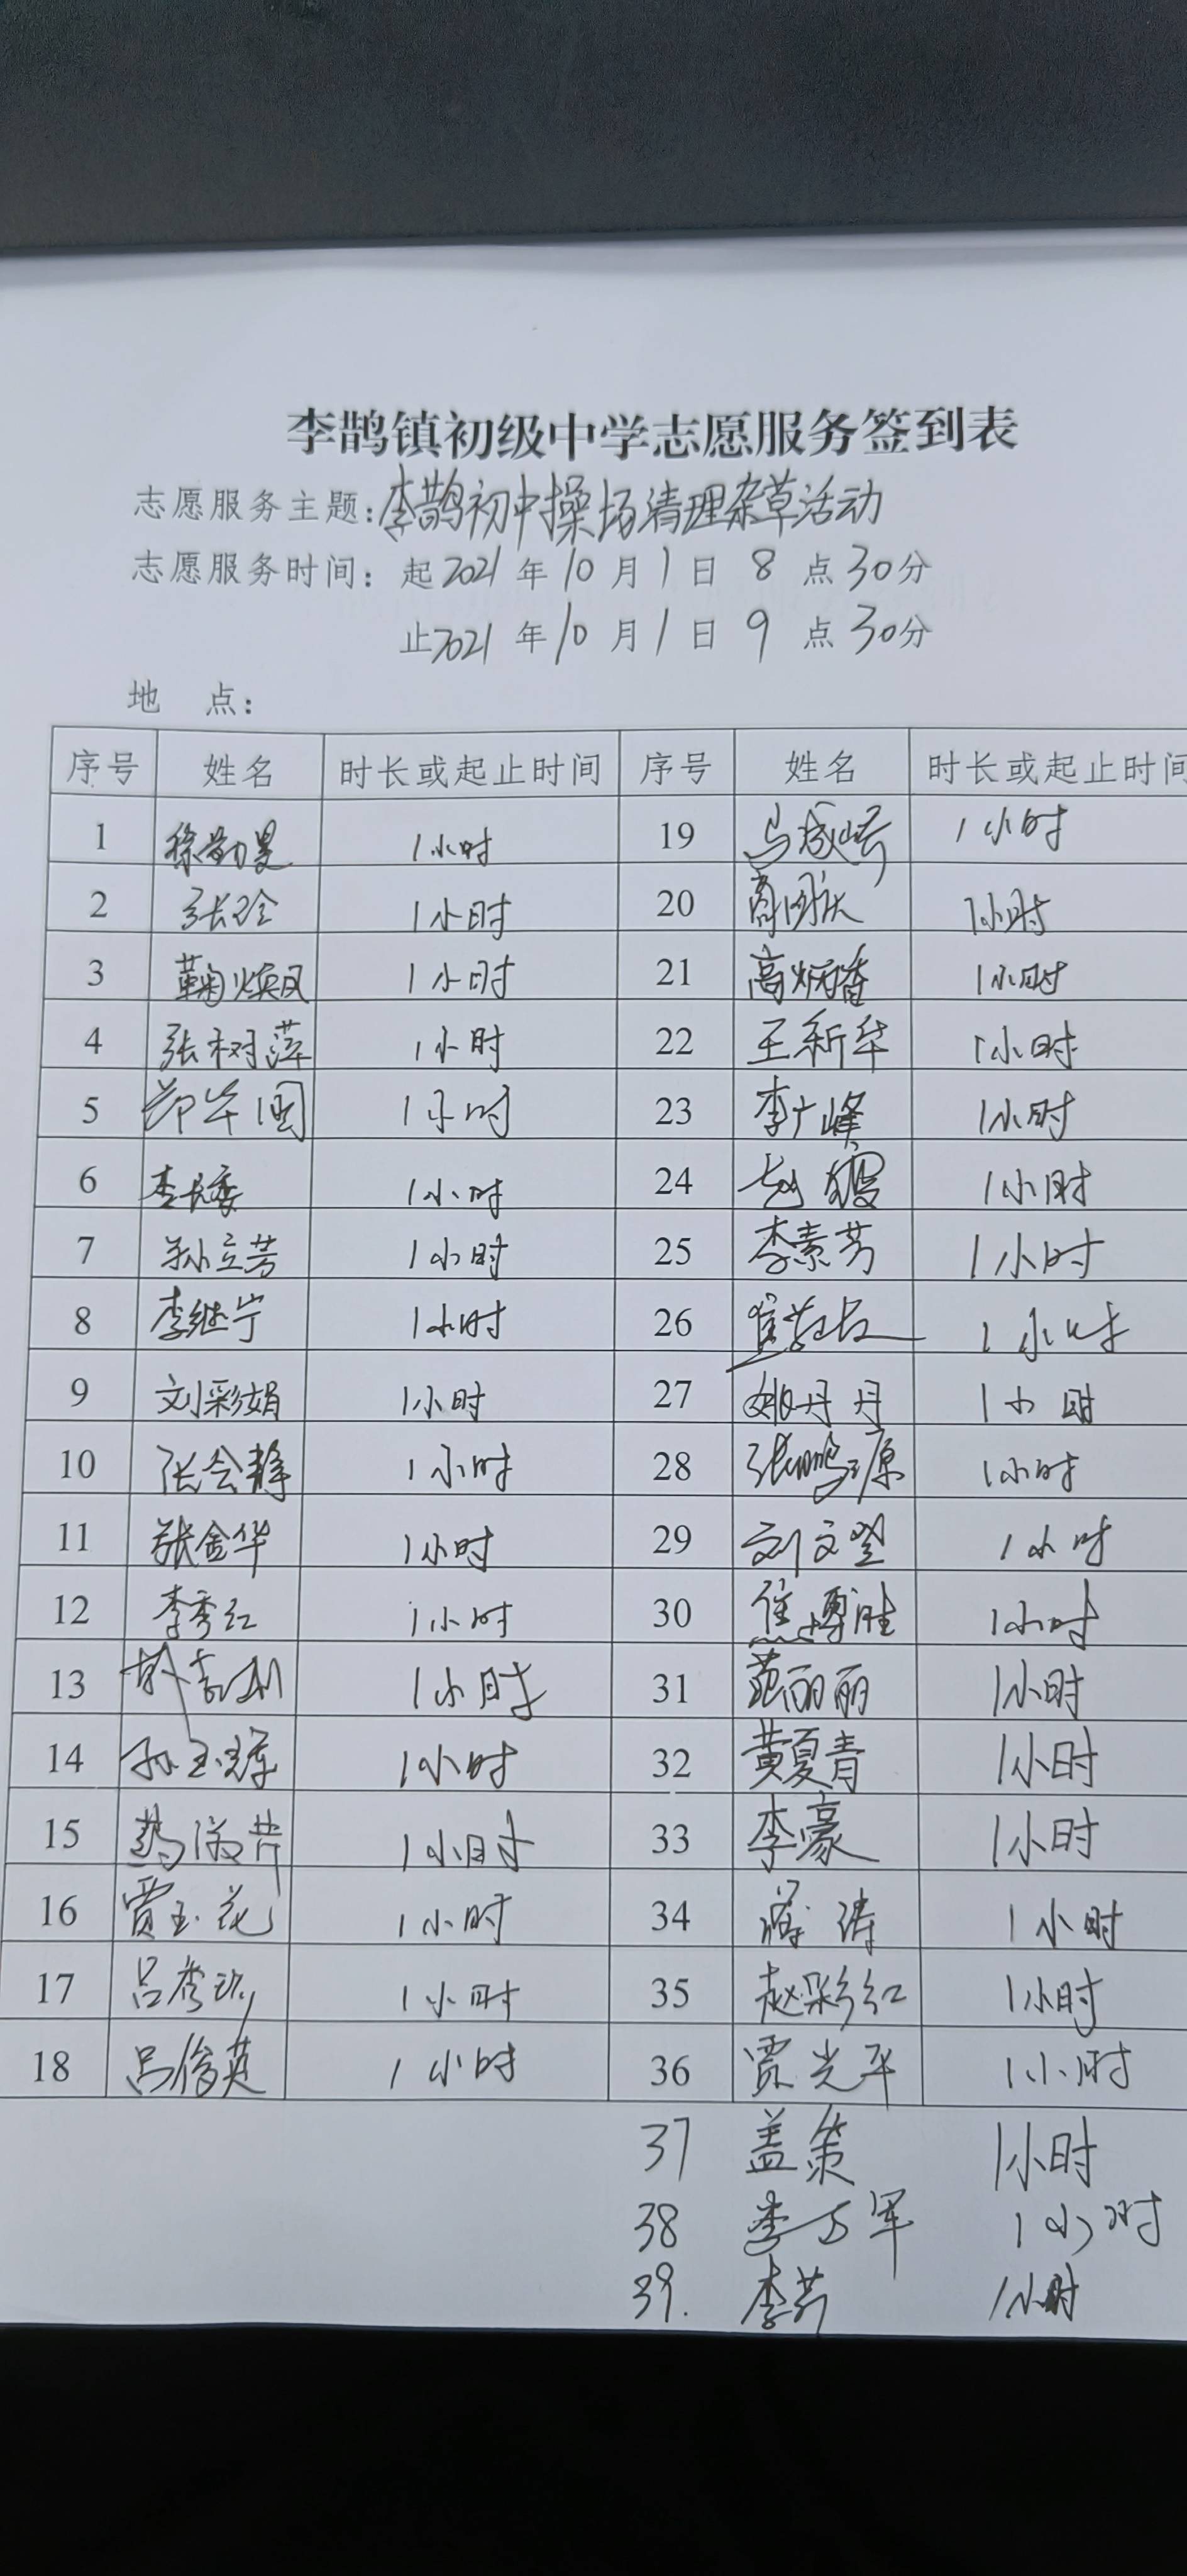 李鹊镇初级中学志愿服务签到表
志愿服务主题：李鹊初中操场清理杂草活动
志愿服务时间：起2021年10月1日8点30分
止2021年10月1日9点30分
地 点：
序号 姓名 时长或起止时间 序号 姓名 时长或起止时间
1 1小时 19 1小时
2 张玲 1小时 20 1小时
3 鞠焕凤 1小时 21 高炳香 1小时
4 张树萍 1小时 22 王新华 1小时
5 1小时 23 李广峰 1小时
6 1小时 24 1小时
7 孙立芳 1小时 25 李素芳 1小时
8 李继宁 1小时 26 1小时
9 刘彩娟 1小时 27 姚丹丹 1小时
10 张会静 1小时 28 张鹏源 1小时
11 张金华 1小时 29 1小时
12 李秀红 1小时 30 焦博胜 1小时
13 1小时 31 范丽丽 1小时
14 1小时 32 黄夏青 1小时
15 1小时 33 李豪 1小时
16 贾玉花 1小时 34 蒋涛 1小时
17 1小时 35 赵彩红 1小时
18 吕俊英 1小时 36 贾光平 1小时
37 盖策 1小时
38 李万军 1小时
39. 1小时